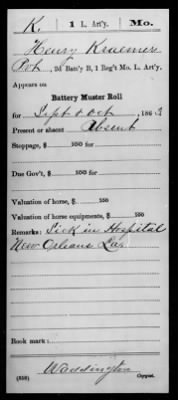 K. 1 L. Art'y. Mo.
Henry Kraemer
Pvt, 2d Bat'y B, 1 Reg't Mo. L. Art'y.
Appears on
Battery Muster Roll
for Sept & Oct, 1863
Present or absent Absent
Stoppage, $ 100 for
Due Gov't, $ 100 for
Valuation of horse, $ 100
Valuation of horse equipments, $ 100
Remarks: Sick in Hospital
New Orleans La,
Book mark:
Waddington
(858) Copyist.